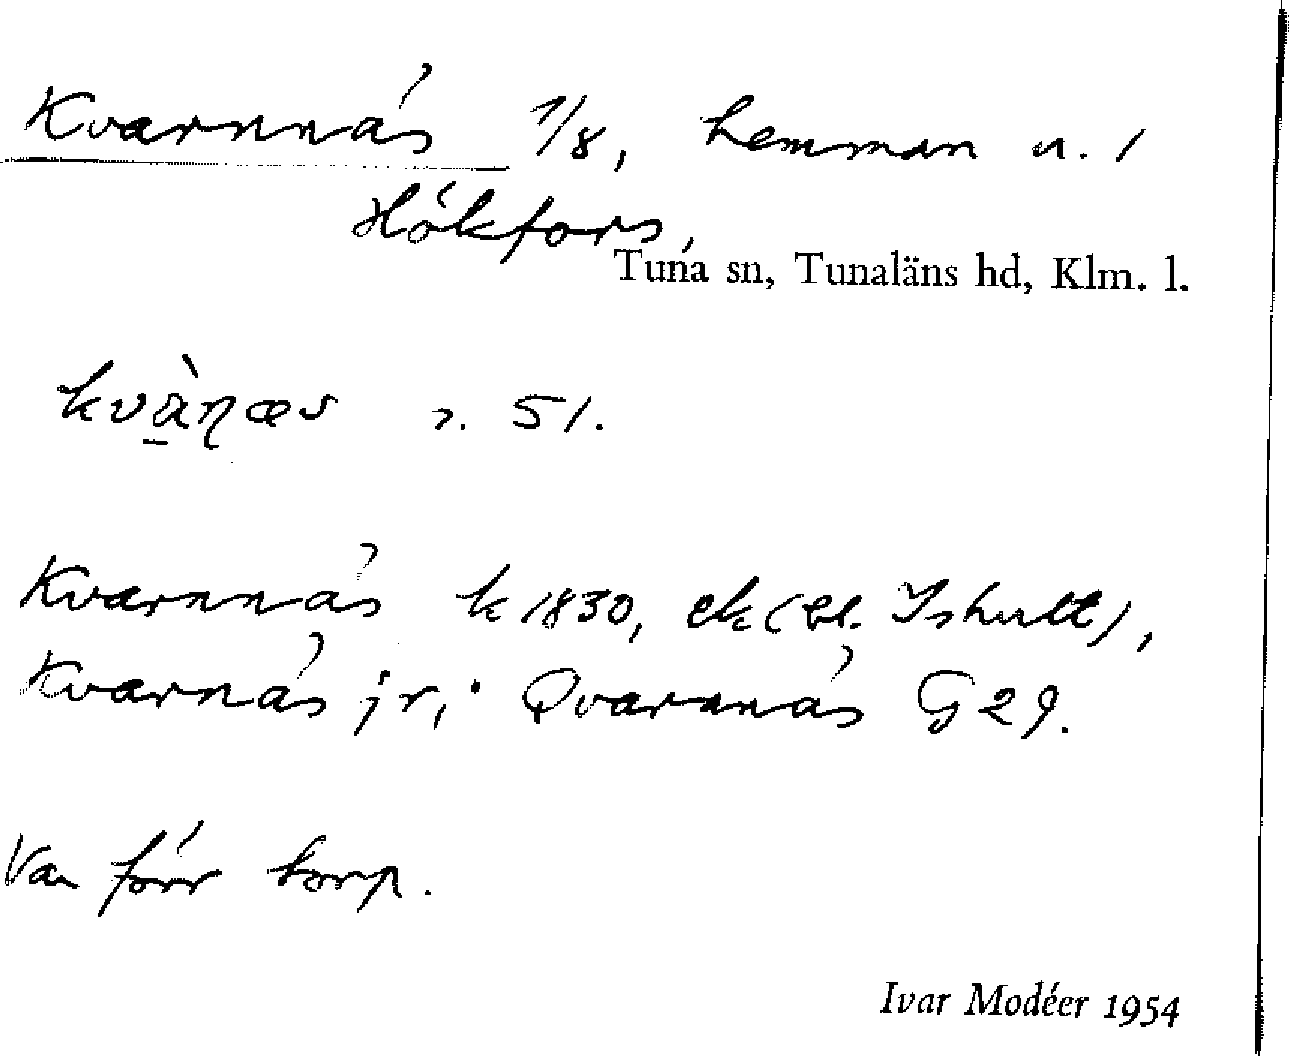 Kvarnnäs 1/8, hemman u. /
Hökfors,
Tuna sn, Tunaläns hd, Klm. l.
kvà̱ɳæs 51.
Kvarnnäs k 1830, ek (bl. Ishult),
Kvarnäs jr; Qvarnnäs G 29.
Van förr torp.
Ivar Modéer 1954